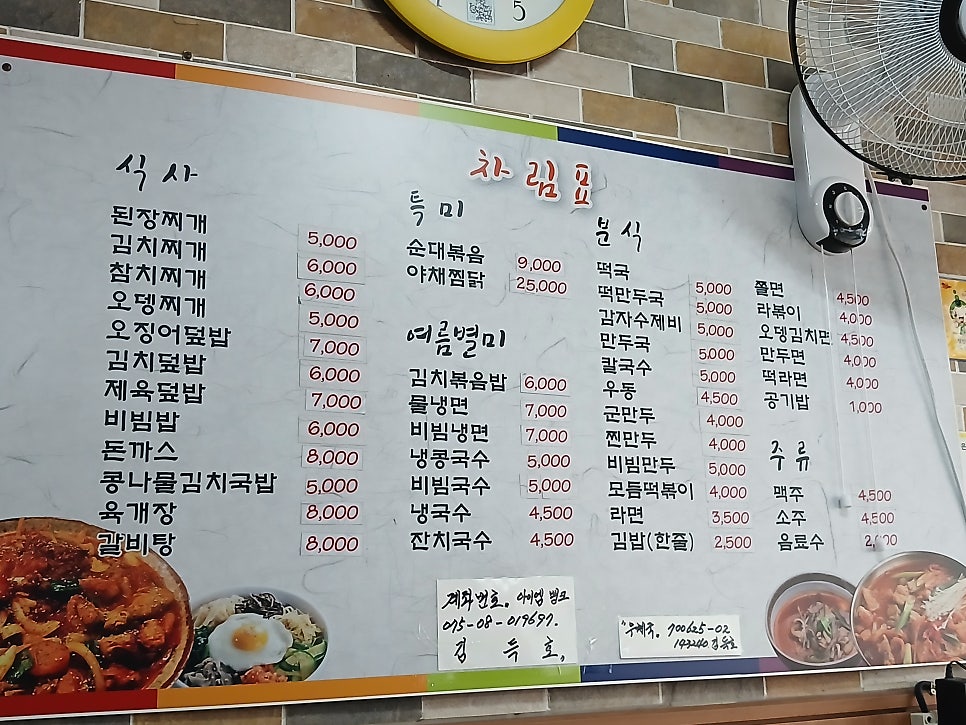 5
차림표
식사
된장찌개 5,000
김치찌개 6,000
참치찌개 6,000
오뎅찌개 5,000
오징어덮밥 7,000
김치덮밥 6,000
제육덮밥 7,000
비빔밥 6,000
돈까스 8,000
콩나물김치국밥 5,000
육개장 8,000
갈비탕 8,000
특미
순대볶음 9,000
야채찜닭 25,000
여름별미
김치볶음밥 6,000
물냉면 7,000
비빔냉면 7,000
냉콩국수 5,000
비빔국수 5,000
냉국수 4,500
잔치국수 4,500
분식
떡국 5,000
떡만두국 5,000
감자수제비 5,000
만두국 5,000
칼국수 5,000
우동 4,500
군만두 4,000
찐만두 4,000
비빔만두 5,000
모듬떡볶이 4,000
라면 3,500
김밥(한줄) 2,500
쫄면 4,500
라볶이 4,000
오뎅김치면 4,500
만두면 4,000
떡라면 4,000
공기밥 1,000
주류
맥주 4,500
소주 4,500
음료수
계좌번호. 아이엠 뱅크
075-08-019697.
김 득 호,
700625-02